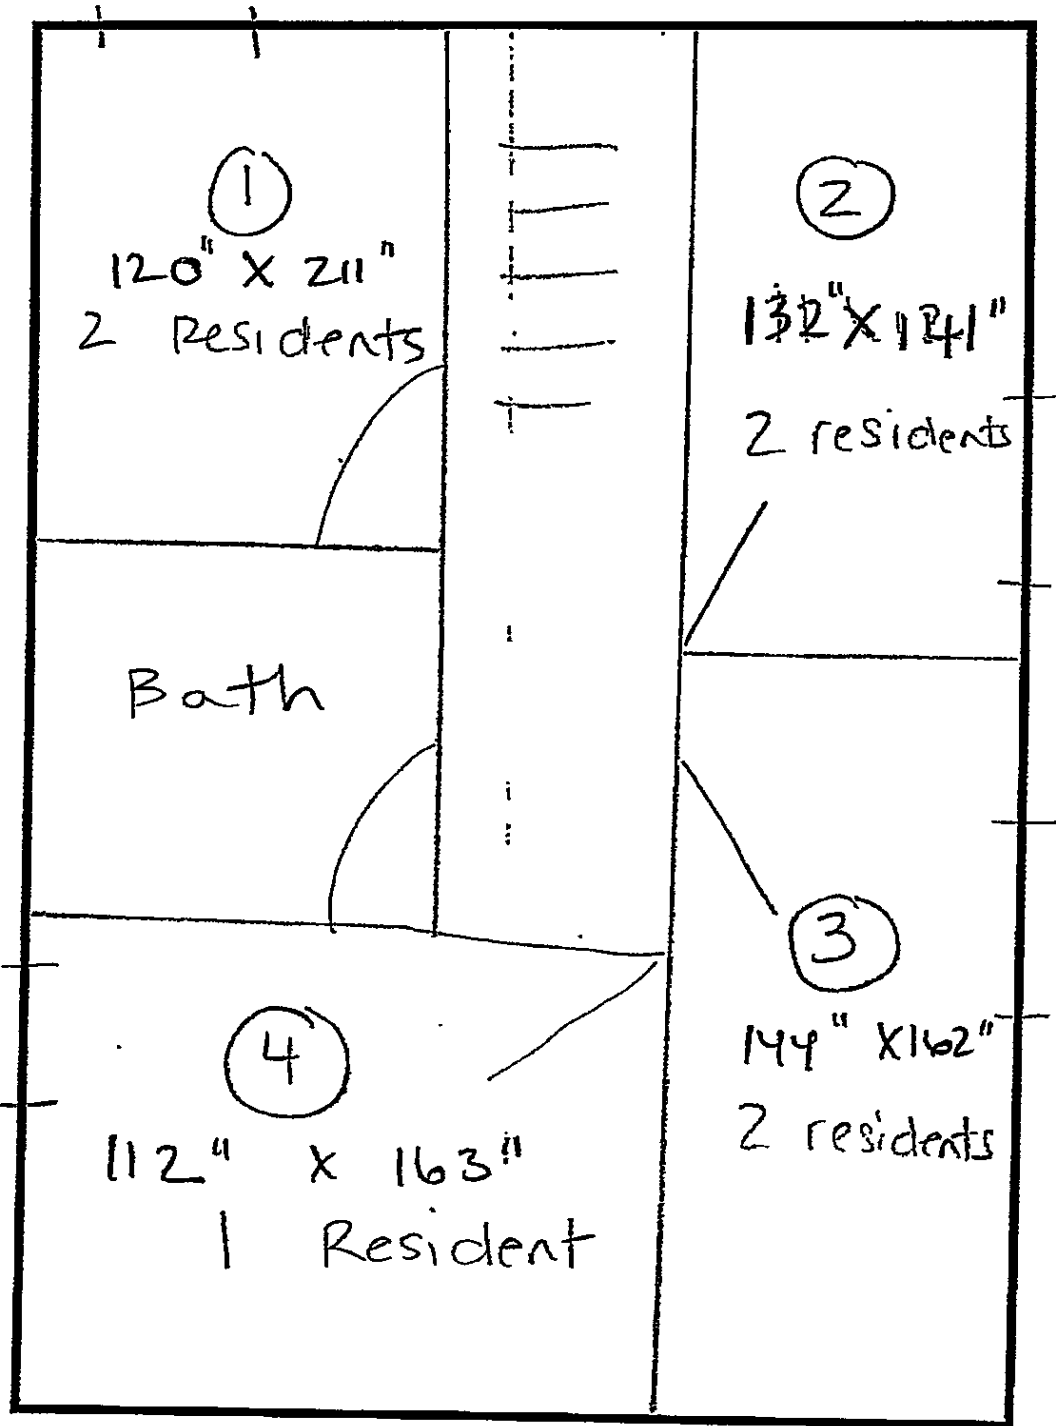 1
120" X 211"
2 Residents
2
X
2 residents
Bath
3
144" X162"
2 residents
4
112" x 163"
1 Resident